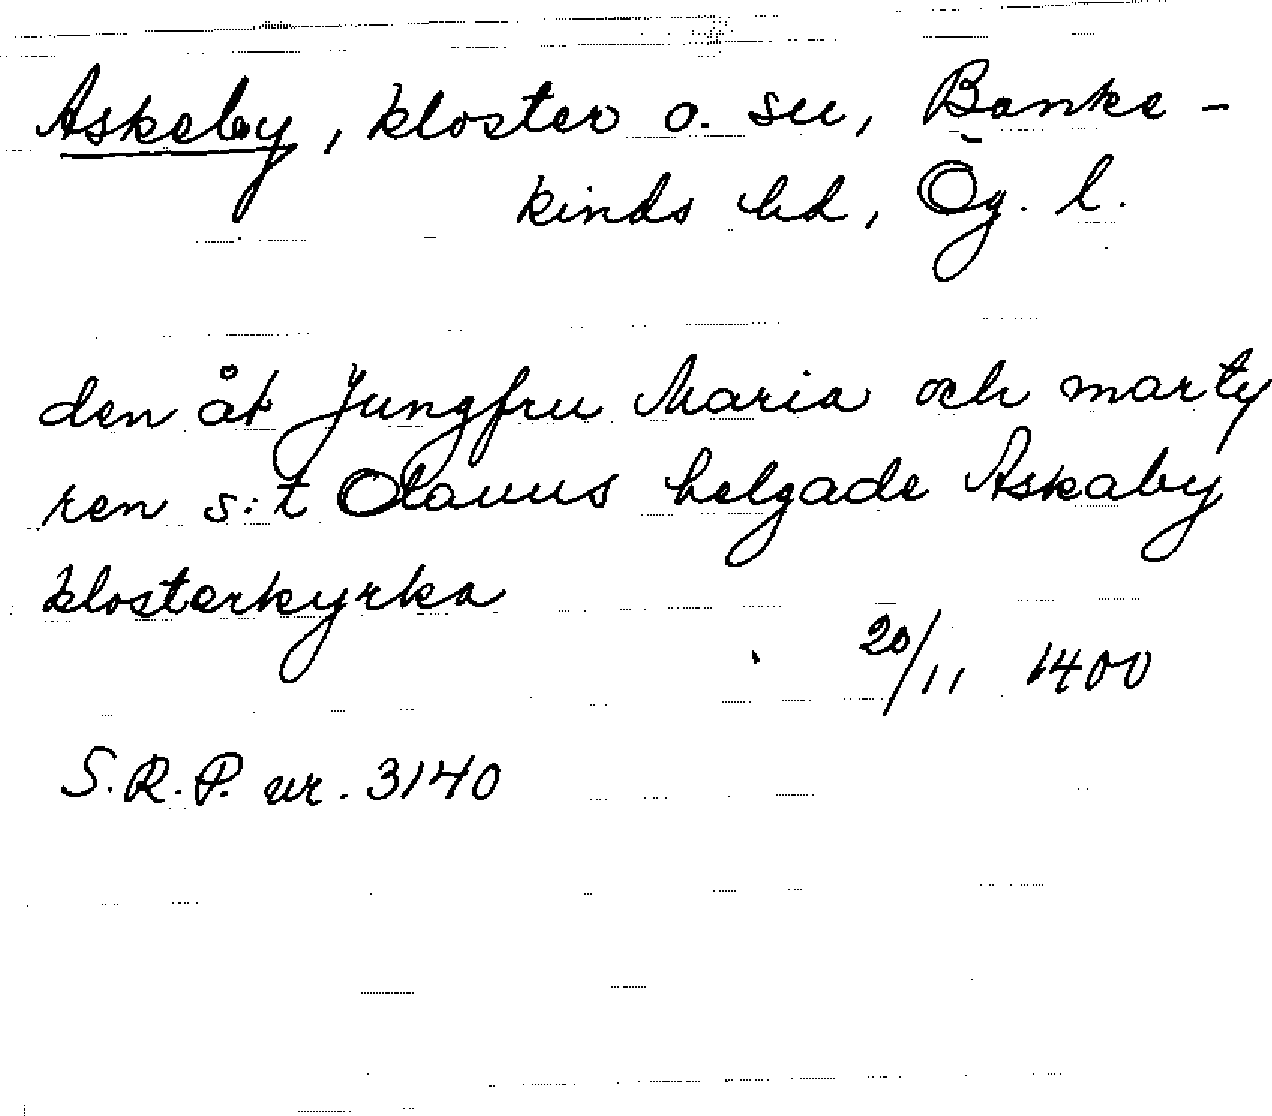 Askeby, kloster o. sn, Banke-
kinds hd, Ög. l.
den åt Jungfru Maria och marty
ren s:t Olavus helgade Askaby
klosterkyrka
20/11 1400
S.R.P. nr. 3140